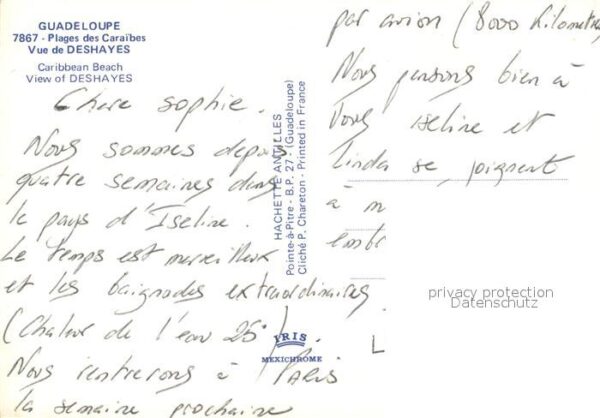 GUADELOUPE
7867 - Plages des Caraïbes
Vue de DESHAYES
Caribbean Beach
View of DESHAYES
Chère Sophie.
Nous sommes depuis
quatre semaines dans
le pays d'Iseline.
Le temps est merveilleux
et les baignades extraordinaires
(Chaleur de l'eau 25°).
Nous rentrerons à PARIS
la semaine prochaine
HACHETTE ANTILLES
Pointe-à-Pitre - B.P. 27 - (Guadeloupe)
Cliché P. Chareton - Printed in France
IRIS
MEXICHROME
par avion (8000 kilomètres
Nous pensons bien à
vous Iseline et
Linda se joignent
à m
embr
L
privacy protection
Datenschutz